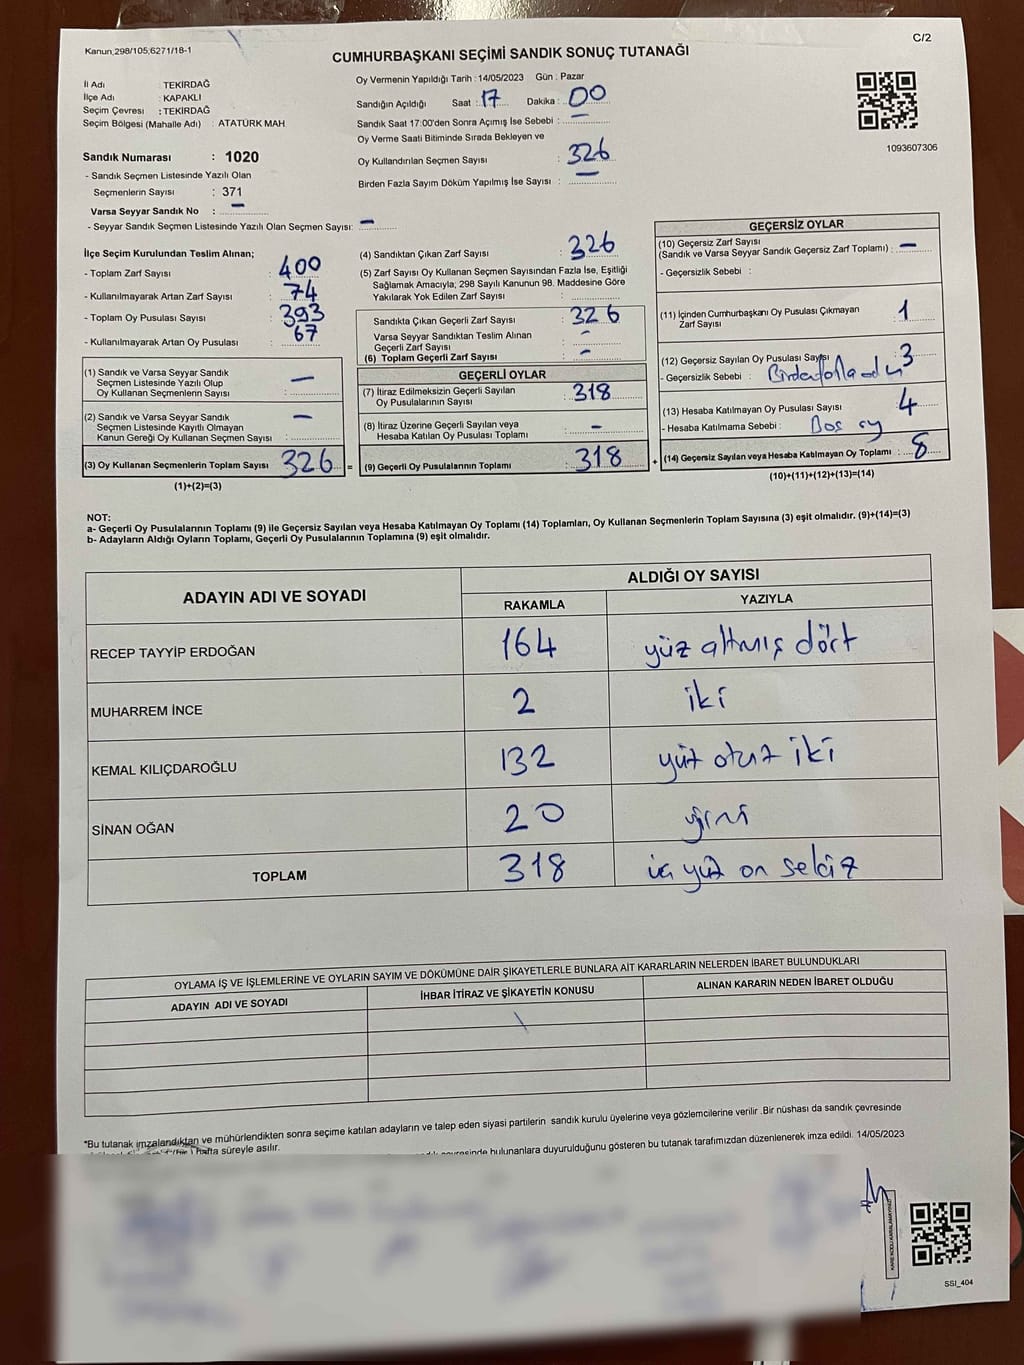 Kanun,298/105,6271/18-1
C/2
CUMHURBAŞKANI SEÇİMİ SANDIK SONUÇ TUTANAĞI
İl Adı : TEKİRDAĞ
İlçe Adı : KAPAKLI
Seçim Çevresi : TEKİRDAĞ
Seçim Bölgesi (Mahalle Adı) : ATATÜRK MAH
Sandık Numarası : 1020
- Sandık Seçmen Listesinde Yazılı Olan
Seçmenlerin Sayısı : 371
Varsa Seyyar Sandık No : —
- Seyyar Sandık Seçmen Listesinde Yazılı Olan Seçmen Sayısı: —
Oy Vermenin Yapıldığı Tarih : 14/05/2023 Gün : Pazar
Sandığın Açıldığı Saat : 17 Dakika : 00
Sandık Saat 17:00'den Sonra Açımış İse Sebebi : —
Oy Verme Saati Bitiminde Sırada Bekleyen ve
Oy Kullandırılan Seçmen Sayısı : 326
Birden Fazla Sayım Döküm Yapılmış İse Sayısı : —
1093607306
İlçe Seçim Kurulundan Teslim Alınan;
- Toplam Zarf Sayısı : 400
- Kullanılmayarak Artan Zarf Sayısı : 74
- Toplam Oy Pusulası Sayısı : 393
- Kullanılmayarak Artan Oy Pusulası : 67
(1) Sandık ve Varsa Seyyar Sandık
Seçmen Listesinde Yazılı Olup
Oy Kullanan Seçmenlerin Sayısı : —
(2) Sandık ve Varsa Seyyar Sandık
Seçmen Listesinde Kayıtlı Olmayan
Kanun Gereği Oy Kullanan Seçmen Sayısı : —
(3) Oy Kullanan Seçmenlerin Toplam Sayısı 326 =
(1)+(2)=(3)
(4) Sandıktan Çıkan Zarf Sayısı : 326
(5) Zarf Sayısı Oy Kullanan Seçmen Sayısından Fazla İse, Eşitliği
Sağlamak Amacıyla; 298 Sayılı Kanunun 98. Maddesine Göre
Yakılarak Yok Edilen Zarf Sayısı :
Sandıkta Çıkan Geçerli Zarf Sayısı : 326
Varsa Seyyar Sandıktan Teslim Alınan
Geçerli Zarf Sayısı : -
(6) Toplam Geçerli Zarf Sayısı : -
GEÇERLİ OYLAR
(7) İtiraz Edilmeksizin Geçerli Sayılan
Oy Pusulalarının Sayısı : 318
(8) İtiraz Üzerine Geçerli Sayılan veya
Hesaba Katılan Oy Pusulası Toplamı : -
(9) Geçerli Oy Pusulalarının Toplamı : 318 +
GEÇERSİZ OYLAR
(10) Geçersiz Zarf Sayısı
(Sandık ve Varsa Seyyar Sandık Geçersiz Zarf Toplamı) : —
- Geçersizlik Sebebi :
(11) İçinden Cumhurbaşkanı Oy Pusulası Çıkmayan
Zarf Sayısı : 1
(12) Geçersiz Sayılan Oy Pusulası Sayısı : 3
- Geçersizlik Sebebi :
(13) Hesaba Katılmayan Oy Pusulası Sayısı : 4
- Hesaba Katılmama Sebebi : Boş oy
(14) Geçersiz Sayılan veya Hesaba Katılmayan Oy Toplamı : 8
(10)+(11)+(12)+(13)=(14)
NOT:
a- Geçerli Oy Pusulalarının Toplamı (9) ile Geçersiz Sayılan veya Hesaba Katılmayan Oy Toplamı (14) Toplamları, Oy Kullanan Seçmenlerin Toplam Sayısına (3) eşit olmalıdır. (9)+(14)=(3)
b- Adayların Aldığı Oyların Toplamı, Geçerli Oy Pusulalarının Toplamına (9) eşit olmalıdır.
ADAYIN ADI VE SOYADI
ALDIĞI OY SAYISI
RAKAMLA YAZIYLA
RECEP TAYYİP ERDOĞAN 164 yüz altmış dört
MUHARREM İNCE 2 iki
KEMAL KILIÇDAROĞLU 132 yüz otuz iki
SİNAN OĞAN 20 yirmi
TOPLAM 318 üç yüz on sekiz
OYLAMA İŞ VE İŞLEMLERİNE VE OYLARIN SAYIM VE DÖKÜMÜNE DAİR ŞİKAYETLERLE BUNLARA AİT KARARLARIN NELERDEN İBARET BULUNDUKLARI
ADAYIN ADI VE SOYADI İHBAR İTİRAZ VE ŞİKAYETİN KONUSU ALINAN KARARIN NEDEN İBARET OLDUĞU
*Bu tutanak imzalandıktan ve mühürlendikten sonra seçime katılan adayların ve talep eden siyasi partilerin sandık kurulu üyelerine veya gözlemcilerine verilir .Bir nüshası da sandık çevresinde
hafta süreyle asılır.
bulunanlara duyurulduğunu gösteren bu tutanak tarafımızdan düzenlenerek imza edildi. 14/05/2023
KARE KODU KARALAMAYINIZ
SSI_404